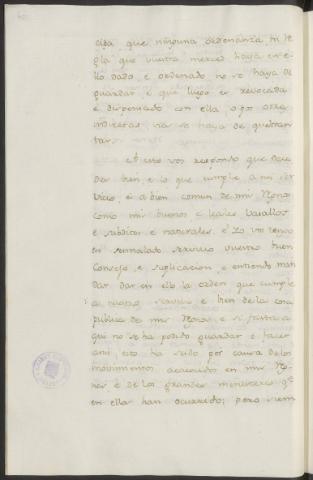 cisa que ninguna ordenanza, ni re
gla que vuestra merced haya en e
llo dado, e ordenado no se haya de
guardar, e que luego es revocada
e dispensado con ella o por otra
indirectas vias se haya de quebran
tar.
A esto vos respondo que decides
dar bien, e lo que cumple a mi ser
vicio, e a bien comun de mis Regnos
como mis buenos e leales vasallos
e subditos e naturales. e Yo vos tengo
en señalado servicio vuestro buen
Consejo, e suplicacion e entiendo man
dar dar en ello la orden que cumple
a nuestro servicio e bien de la cosa
publica de mis Regnos, e si fasta a
qui no se ha podido guardar e facer
ansi, esto ha seido por causa de los
movimientos acaecidos en mis Reg
nos e de los grandes menesteres q.e
en ellos han ocurrido; pero siem